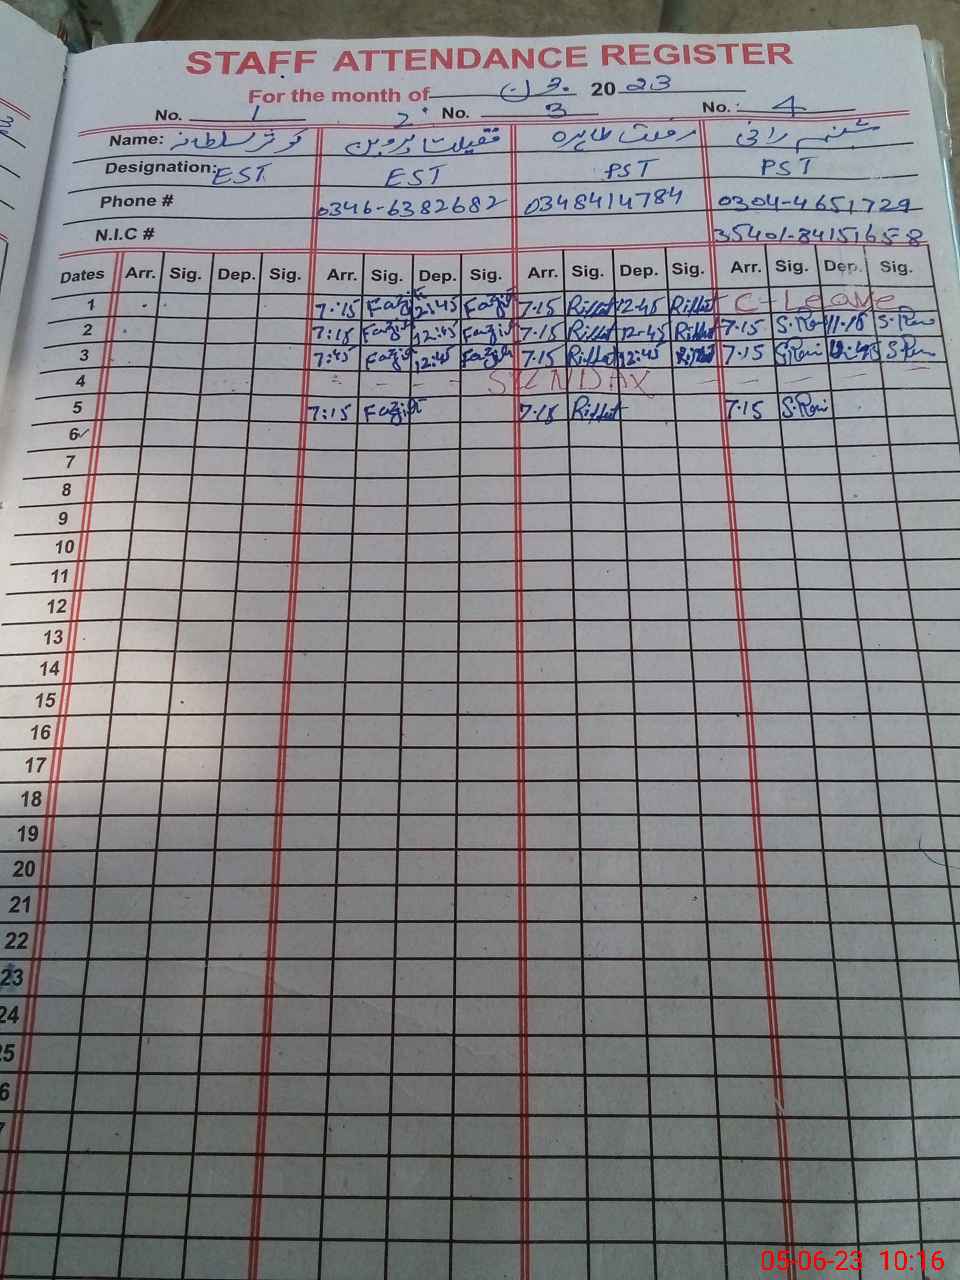 STAFF ATTENDANCE REGISTER
For the month of جون 2023
No. 1 2 No. 3 No. 4
Name: کوثر سلطانہ پروین رفعت طاہرہ شبنم رانی
Designation: EST EST PST PST
Phone # 0346-6382682 03484114784 0304-4651729
N.I.C # 35401-8415165-8
Dates Arr. Sig. Dep. Sig. Arr. Sig. Dep. Sig. Arr. Sig. Dep. Sig. Arr. Sig. Dep. Sig.
1 7:15 12:45 7.15 Riffat 12-45 Riffat C-Leave
2 7:15 12:45 7.15 Riffat 12-45 Riffat 7.15 S.Rani 11.15 S.Rani
3 7:45 12:45 7.15 Riffat 12:45 Riffat 7.15 S.Rani S.Rani
4 SUNDAY
5 7:15 7.15 Riffat 7.15 S.Rani
6
7
8
9
10
11
12
13
14
15
16
17
18
19
20
21
22
23
24
25
6
7
05-06-23 10:16